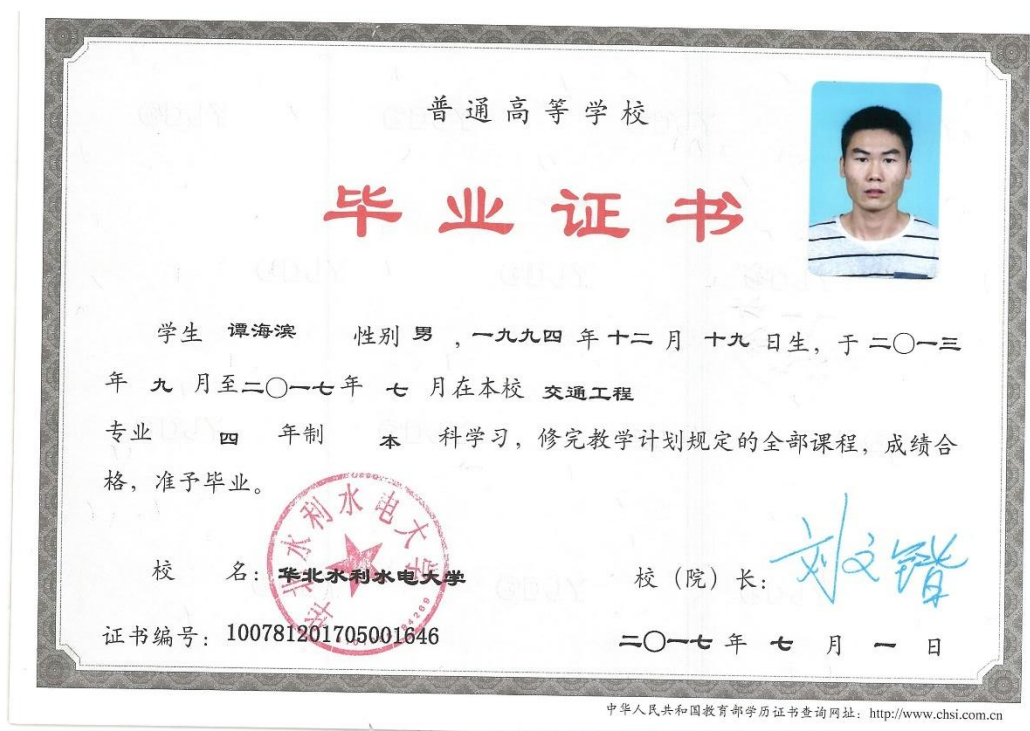 普通高等学校
毕业证书
学生 谭海滨 性别 男 ,一九九四 年 十二 月 十九 日生，于 二〇一三
年 九 月至二〇一七年 七 月在本校 交通工程
专业 四 年制 本 科学习，修完教学计划规定的全部课程，成绩合
格，准予毕业。
华北水利水电大学
校 名：华北水利水电大学
校（院）长：刘文锴
证书编号：100781201705001646
二〇一七 年 七 月 一 日
中华人民共和国教育部学历证书查询网址：http://www.chsi.com.cn